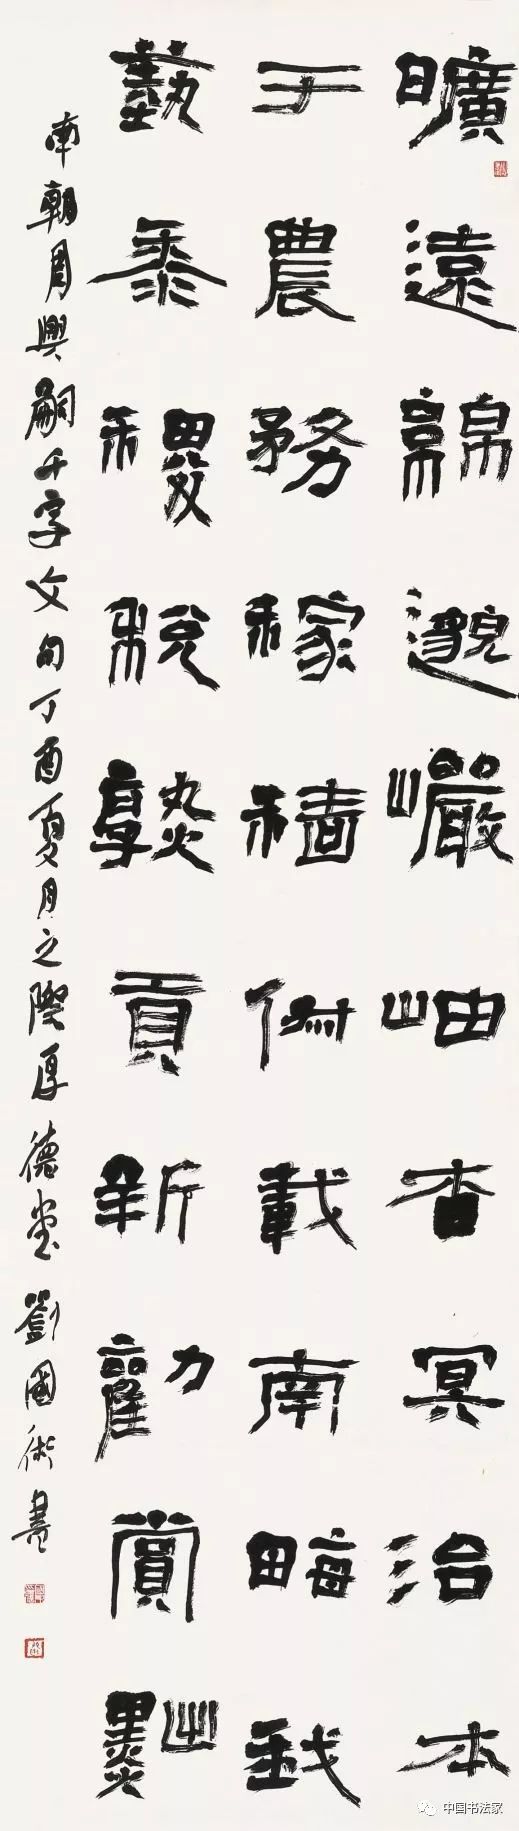 曠遠綿邈巖岫杳冥治本
于農務稼穡俶載南畮我
蓺黍稷稅熟貢新勸賞黜
南朝周興嗣千字文句丁酉夏月之際厚德堂劉國術書
中国书法家